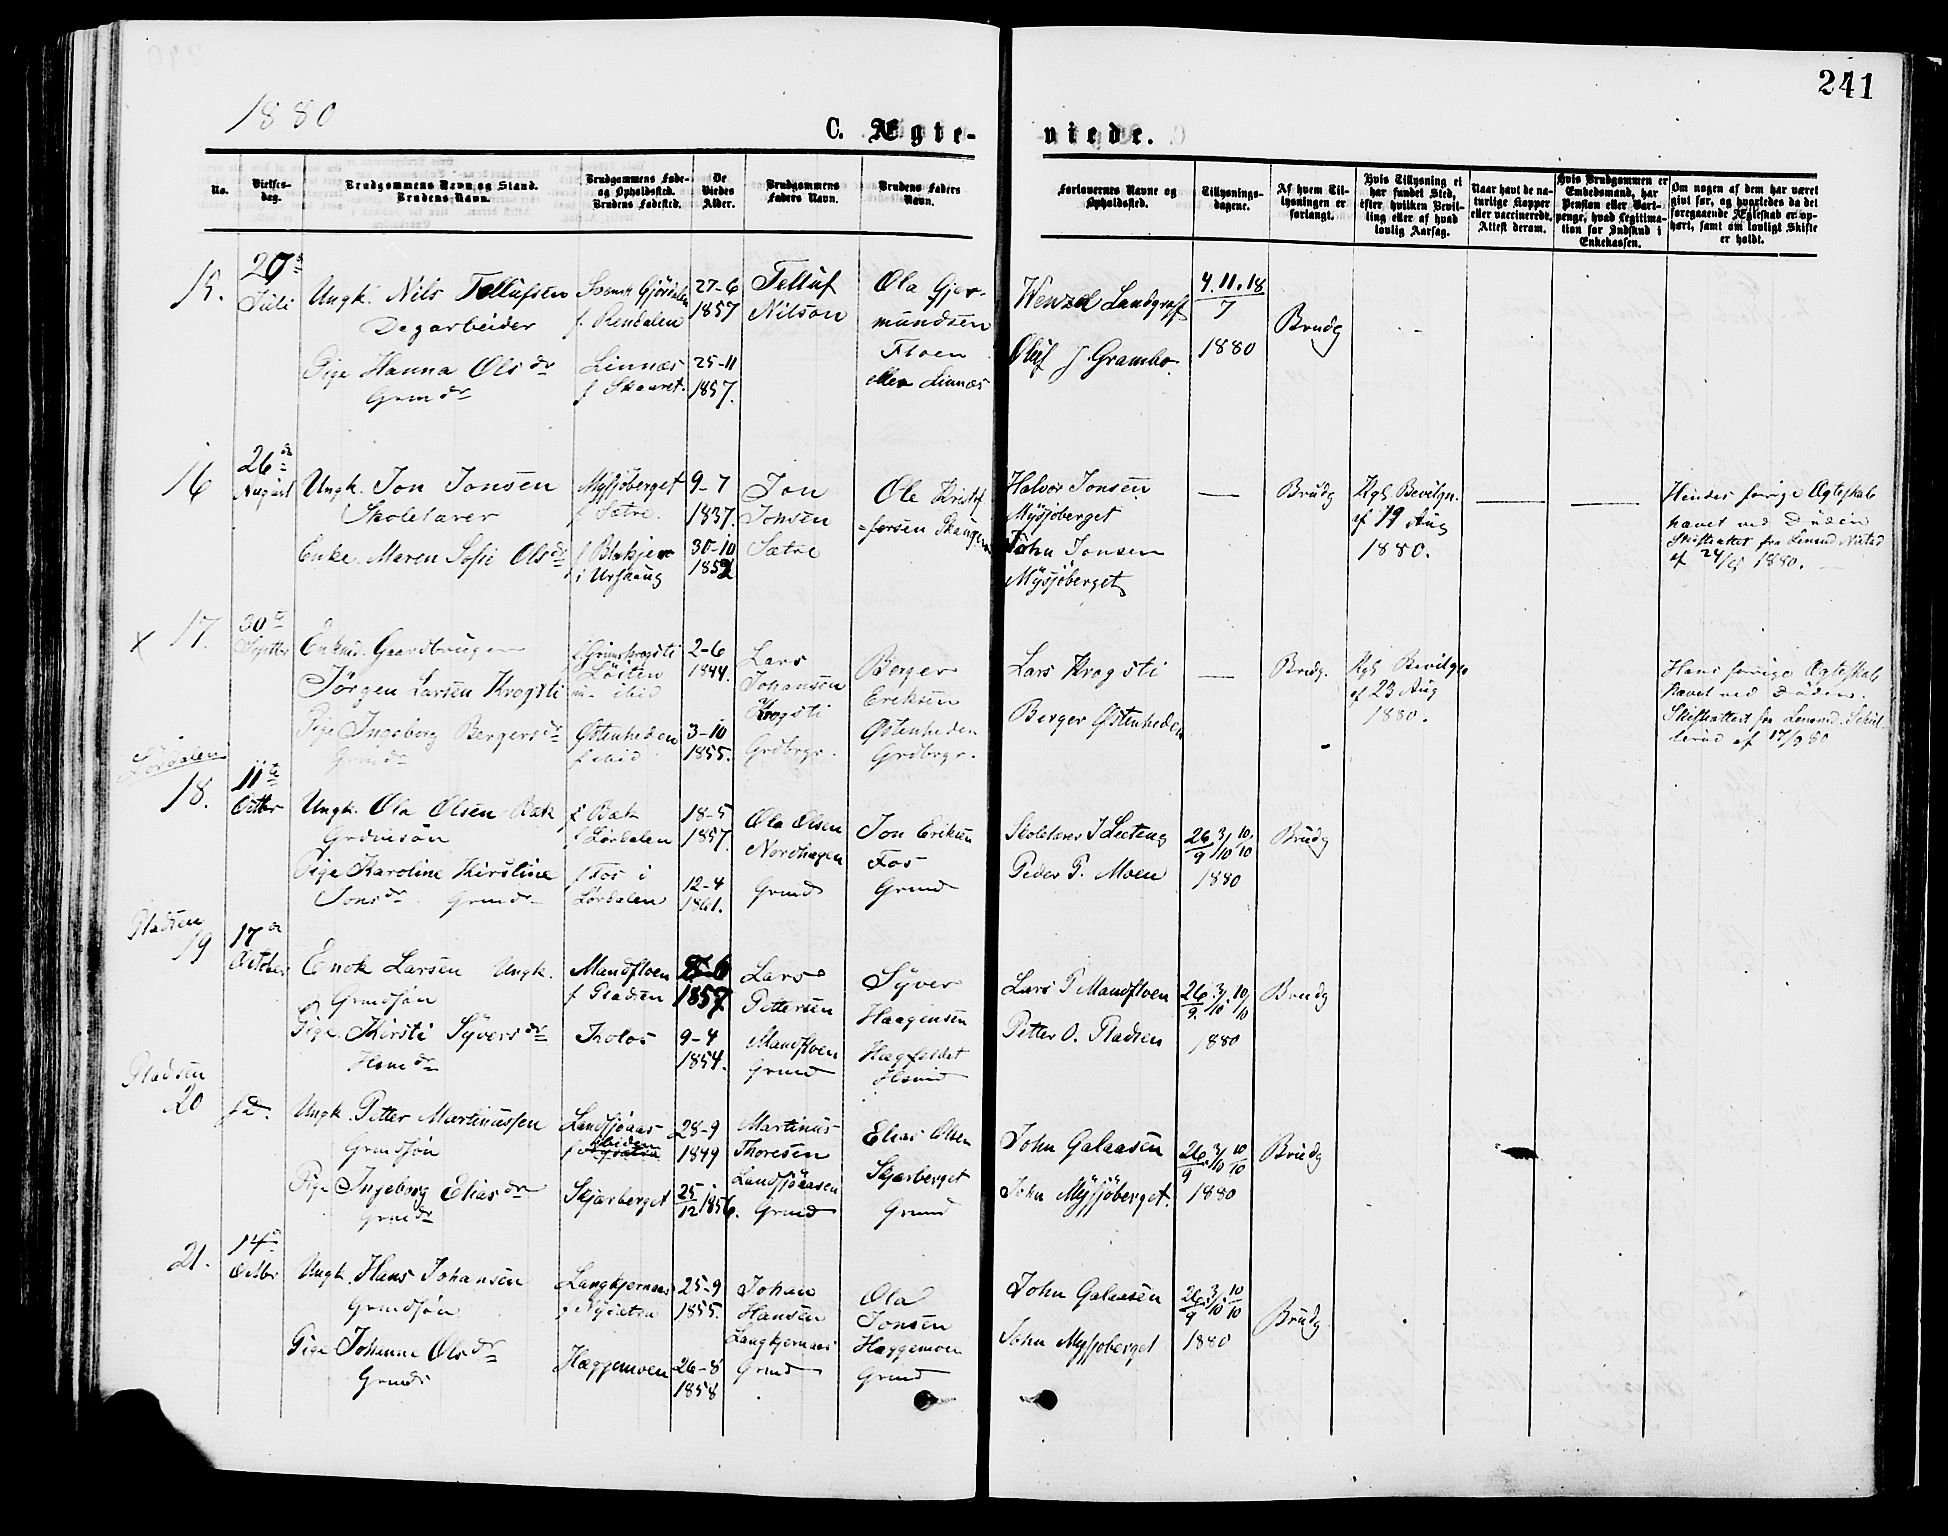 241
1880
C. Ægte-
viede.
No.
Vielses-
dag.
Brudgommens Navn og Stand.
Brudens Navn.
Brudgommens Føde-
og Opholdssted.
Brudens Fødested.
De
Viedes
Alder.
Brudgommens
Faders Navn.
Brudens Faders
Navn.
Forlovernes Navne og
Opholdssted.
Tillysnings-
dagene.
Af hvem Til-
lysningen er
forlangt.
Hvis Tillysning ei
har fundet Sted,
efter hvilken Bevil-
ling eller af hvad
lovlig Aarsag.
Naar havt de na-
turlige Kopper
eller vaccinerede.
Attest derom.
Hvis Brudgommen er
Embedsmand, har
Pension eller Vart-
penge, hvad Legitima-
tion for Indskud i
Enkekassen.
Om nogen af dem har været
givt før, og hvorledes da det
foregaaende Ægteskab er op-
hørt, samt om lovligt Skifte
er holdt.
15.
20
Juli
Ungk. Nils Tellufsen
Dagarbeider
Pige Hanna Ols dr
Grmdr
f. Rendalen
Linnæs
f Skauret.
27-6
1857
25-11
1857.
Telluf
Nilson
Ola Gjer-
mundsen
Floen
eller Linnæs
Wenzel Landgraff
Oluf J. Grambo
4.11.18
7
1880
Brudg
16
26
August
Ungk. Jon Jonsen
Skolelærer
Enke Maren Sofie Olsdr
Mysjøberget
f Sætre.
f Blakjer
i Urskaug
9-7
1837.
30-10
1852
Jon
Jonsen
Sætre
Ole Kristof
=fersen Skaugen
Halvor Jonsen
Mysjøberget
John Jonsen
Mysjøberget
—
Brudg
Kgl Bevilgn.
af 19 Aug
1880.
—
—
Hendes forrige Ægteskab
hævet ved Døden
Skifteattest fra Lensmd
1880.
x 17.
30te
Septbr
Enkmd. Gaardbruger
Jørgen Larsen Krogsti
Pige Ingeborg Bergersdr
Grmdr
Løiten
Østenheden
f ibid
2-6
1844.
3-10
1855.
Lars
Johansen
Krogsti
Grdbrgr.
Berger
Eriksen
Østenheden
Grdbrgr.
Lars Krogsti
Berger Østenheden
—
Brudg.
Kgl Bevilgn
af 23 Aug
1880.
Hans forrige Ægteskab
hævet ved Døden.
Skifteattest fra Lensmd.
af 17/9 80
Lørdalen
18.
11te
Octbr
Ungk. Ola Olsen Bak
Grdmsøn
Pige Karoline Kirstine
Jonsdr Grmdr
f Bak
f Lørdalen
f Fos i
Lørdalen
18-5
1857.
12-4
1861.
Ola Olsen
Nordhagen
Grmd
Jon Eriksen
Fos
Grmd
Skolelærer J Leeteng
Peder P. Moen
26/9 3/10 10/10
1880
Brudg
Pladsen
19
17de
October
Enok Larsen Ungk.
Grmdsøn
Pige Kirsti Syversdr
Hsmdr
Mandfloen
f Pladsen
1857
9-4
1854.
Lars
Pettersen
Mandfloen
Grmd
Syver
Haagensen
Hsmd
Lars P Mandfloen
Petter O. Pladsen
26/9 3/10 10/10
1880
Brudg
Pladsen
20
Ungk Petter Martinussen
Grmdsøn
Pige Ingeborg Eliasdr
Grmdr
Landsjøaas
Skjærberget
28-9
1849
25/12 1856.
Martinus
Thoresen
Landsjøaasen
Grmd
Elias Olsen
Skjærberget
Grmd
John Galaasen
John Mysjøberget.
26/9 3/10 10/10
1880
Brudg
21.
14
Octbr
Ungk Hans Johansen
Grmdsøn
Pige Johanne Olsdr
Grmdr
Langkjernaas
f Nysætra
Hæggemoen
25-9
1855.
26-8
1858
Johan
Hansen
Langkjernaas
Grmd
Ola
Jonsen
Hæggemoen
Grmd
John Galaasen
John Mysjøberget
26/9 3/10 10/10
1880
Brudg